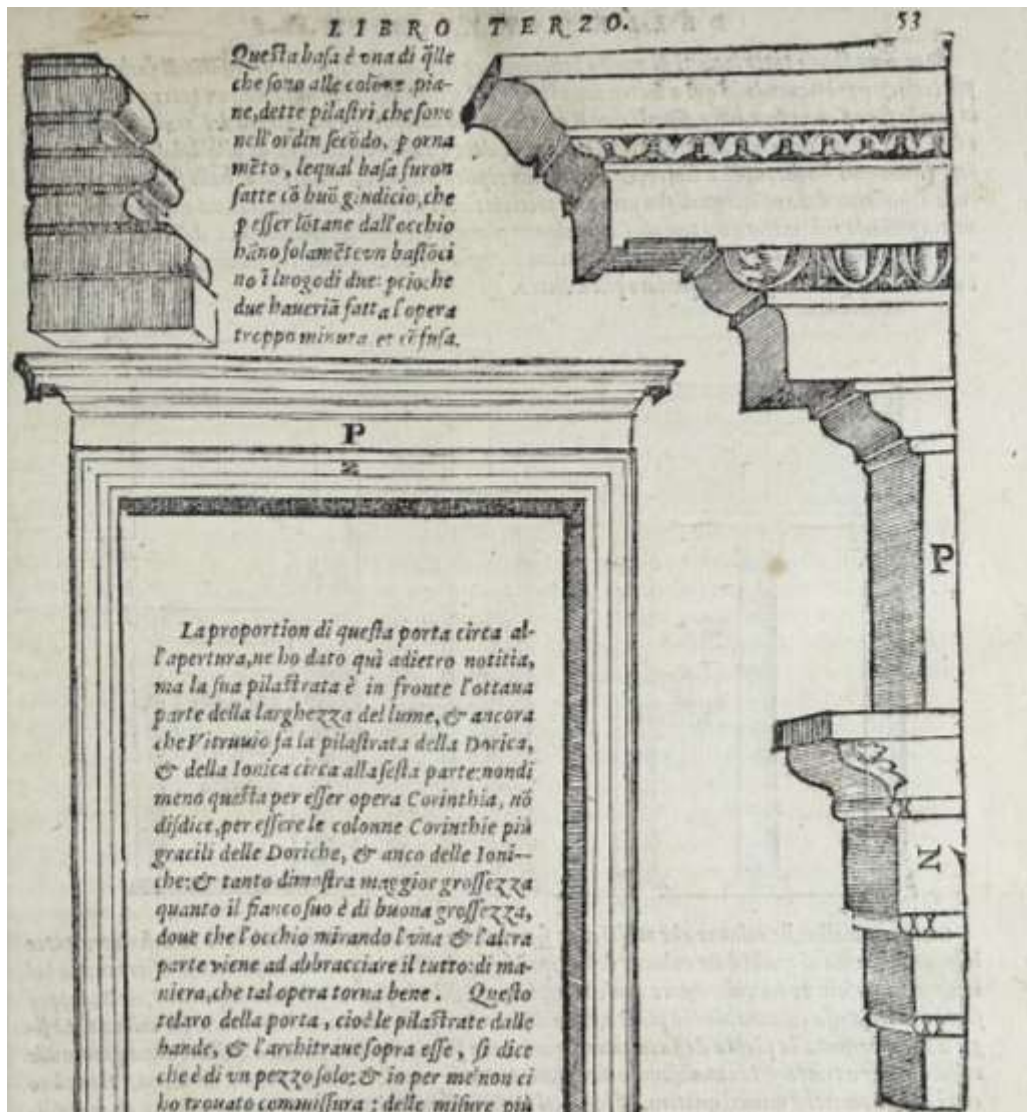 LIBRO TERZO.
53
Questa basa è vna di q̃lle
che sono alle colõne, pia-
ne, dette pilastri, che sono
nell'ordin secõdo, p orna
mẽto, lequal basa furon
fatte cõ buõ giudicio, che
p esser lõtane dall'occhio
hãno solamẽte vn bastõci
no ĩ luogo di due: pcioche
due haueriã fatta l'opera
troppo minuta et cõfusa.
P
Z
La proportion di questa porta circa al-
l'apertura, ne ho dato quì adietro notitia,
ma la sua pilastrata è in fronte l'ottaua
parte della larghezza del lume, & ancora
che Vitruuio fa la pilastrata della Dorica,
& della Ionica circa alla sesta parte: nondi
meno questa per esser opera Corinthia, nõ
disdice, per essere le colonne Corinthie più
gracili delle Doriche, & anco delle Ioni-
che: & tanto dimostra maggior grossezza
quanto il fianco suo è di buona grossezza,
doue che l'occhio mirando l'vna & l'altra
parte viene ad abbracciare il tutto: di ma-
niera, che tal opera torna bene. Questo
telaro della porta, cioè le pilastrate dalle
bande, & l'architraue sopra esse, si dice
che è di vn pezzo solo: & io per me non ci
ho trouato commissura: delle misure più
P
Z